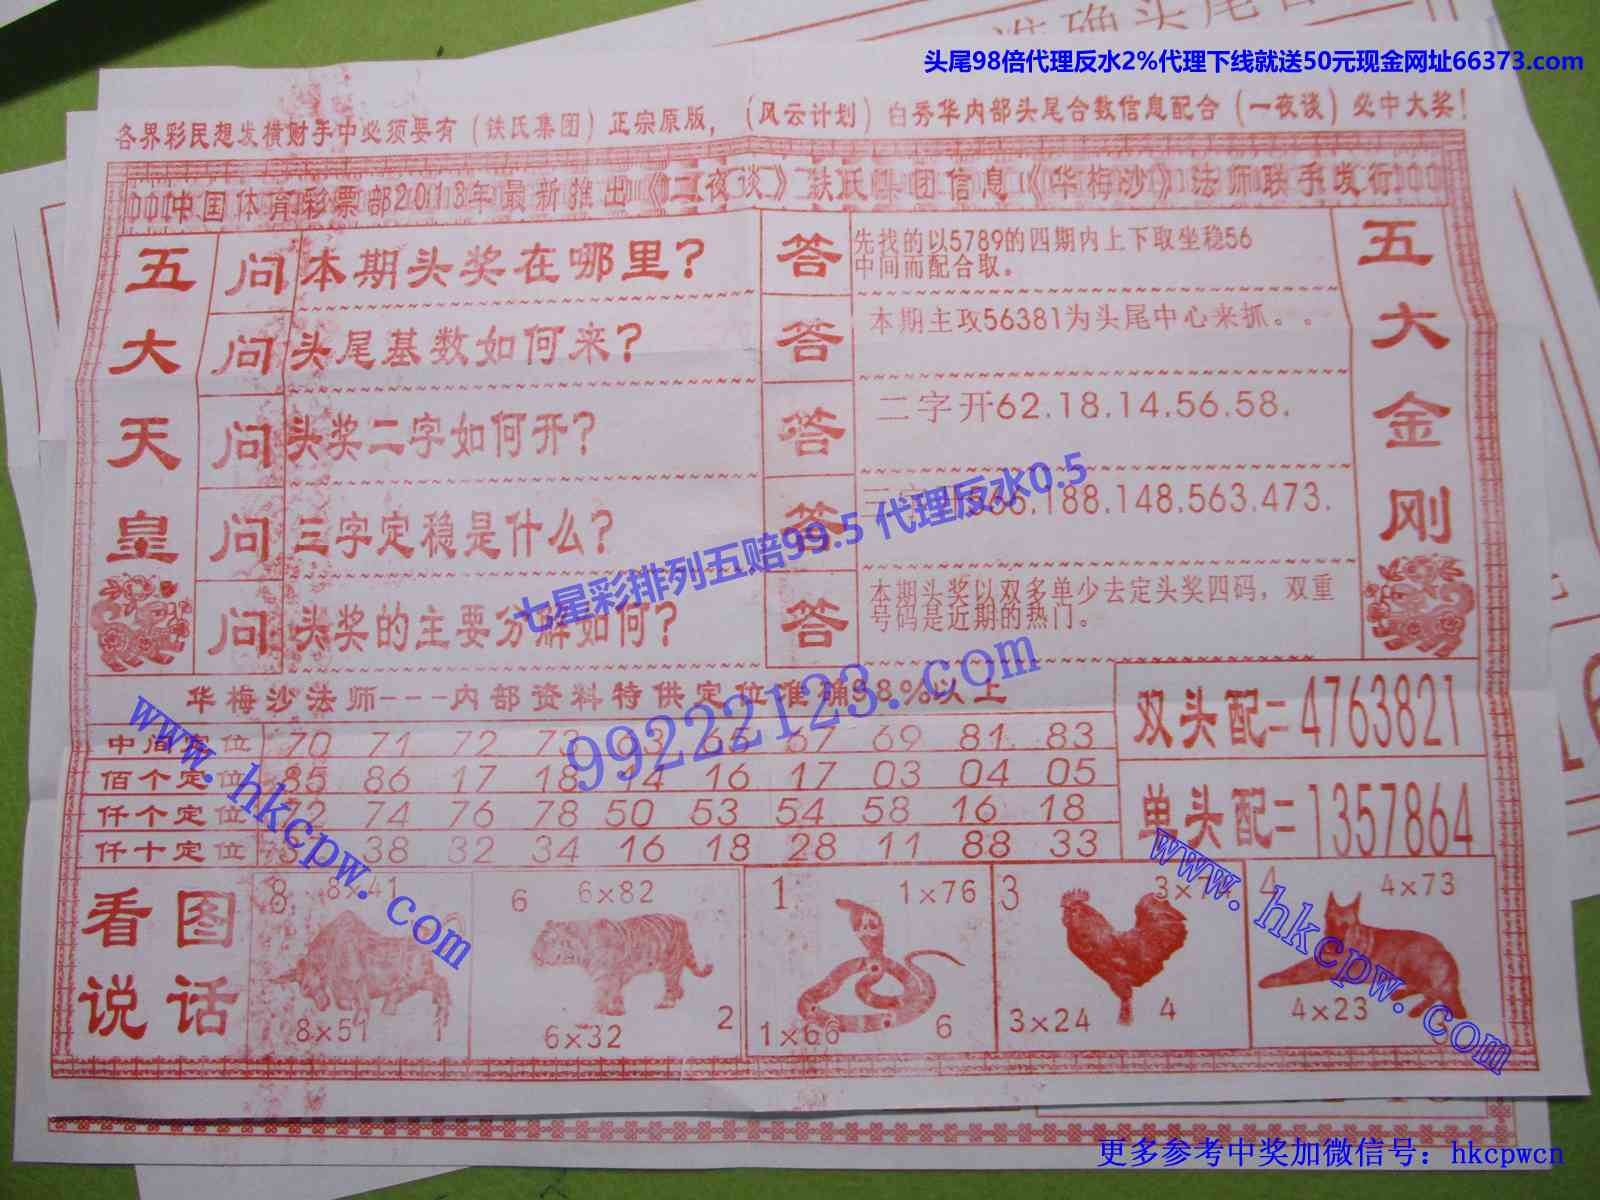 准确头尾
头尾98倍代理反水2%代理下线就送50元现金网址66373.com
各界彩民想发横财手中必须要有（铁氏集团）正宗原版，（风云计划）白秀华内部头尾合数信息配合（一夜谈）必中大奖！
中国体育彩票部2013年最新推出《一夜谈》铁氏集团信息《华梅沙》法师联手发行
五大天皇
问 本期头奖在哪里？
答 先找的以5789的四期内上下取坐稳56
中间而配合取。
问 头尾基数如何来？
答 本期主攻56381为头尾中心来抓。。
问 头奖二字如何开？
答 二字开62.18.14.56.58.
问 三字定稳是什么？
答 66.188.148.563.473.
问 头奖的主要分解如何？
答 本期头奖以双多单少去定头奖四码，双重
号码是近期的热门。
五大金刚
七星彩排列五赔99.5 代理反水0.5
99222123.com
华梅沙法师---内部资料特供定位准确98%以上
中间定位 70 71 72 73 63 65 67 69 81 83
佰个定位 85 86 17 18 14 16 17 03 04 05
仟个定位 72 74 76 78 50 53 54 58 16 18
仟十定位 38 32 34 16 18 28 11 88 33
双头配=4763821
单头配=1357864
www.hkcpw.com
www.hkcpw.com
看图
说话
8 8×41
8×51 1
6 6×82
6×32 2
1 1×76
1×66 6
3 3×74
3×24 4
4 4×73
4×23
更多参考中奖加微信号：hkcpwcn